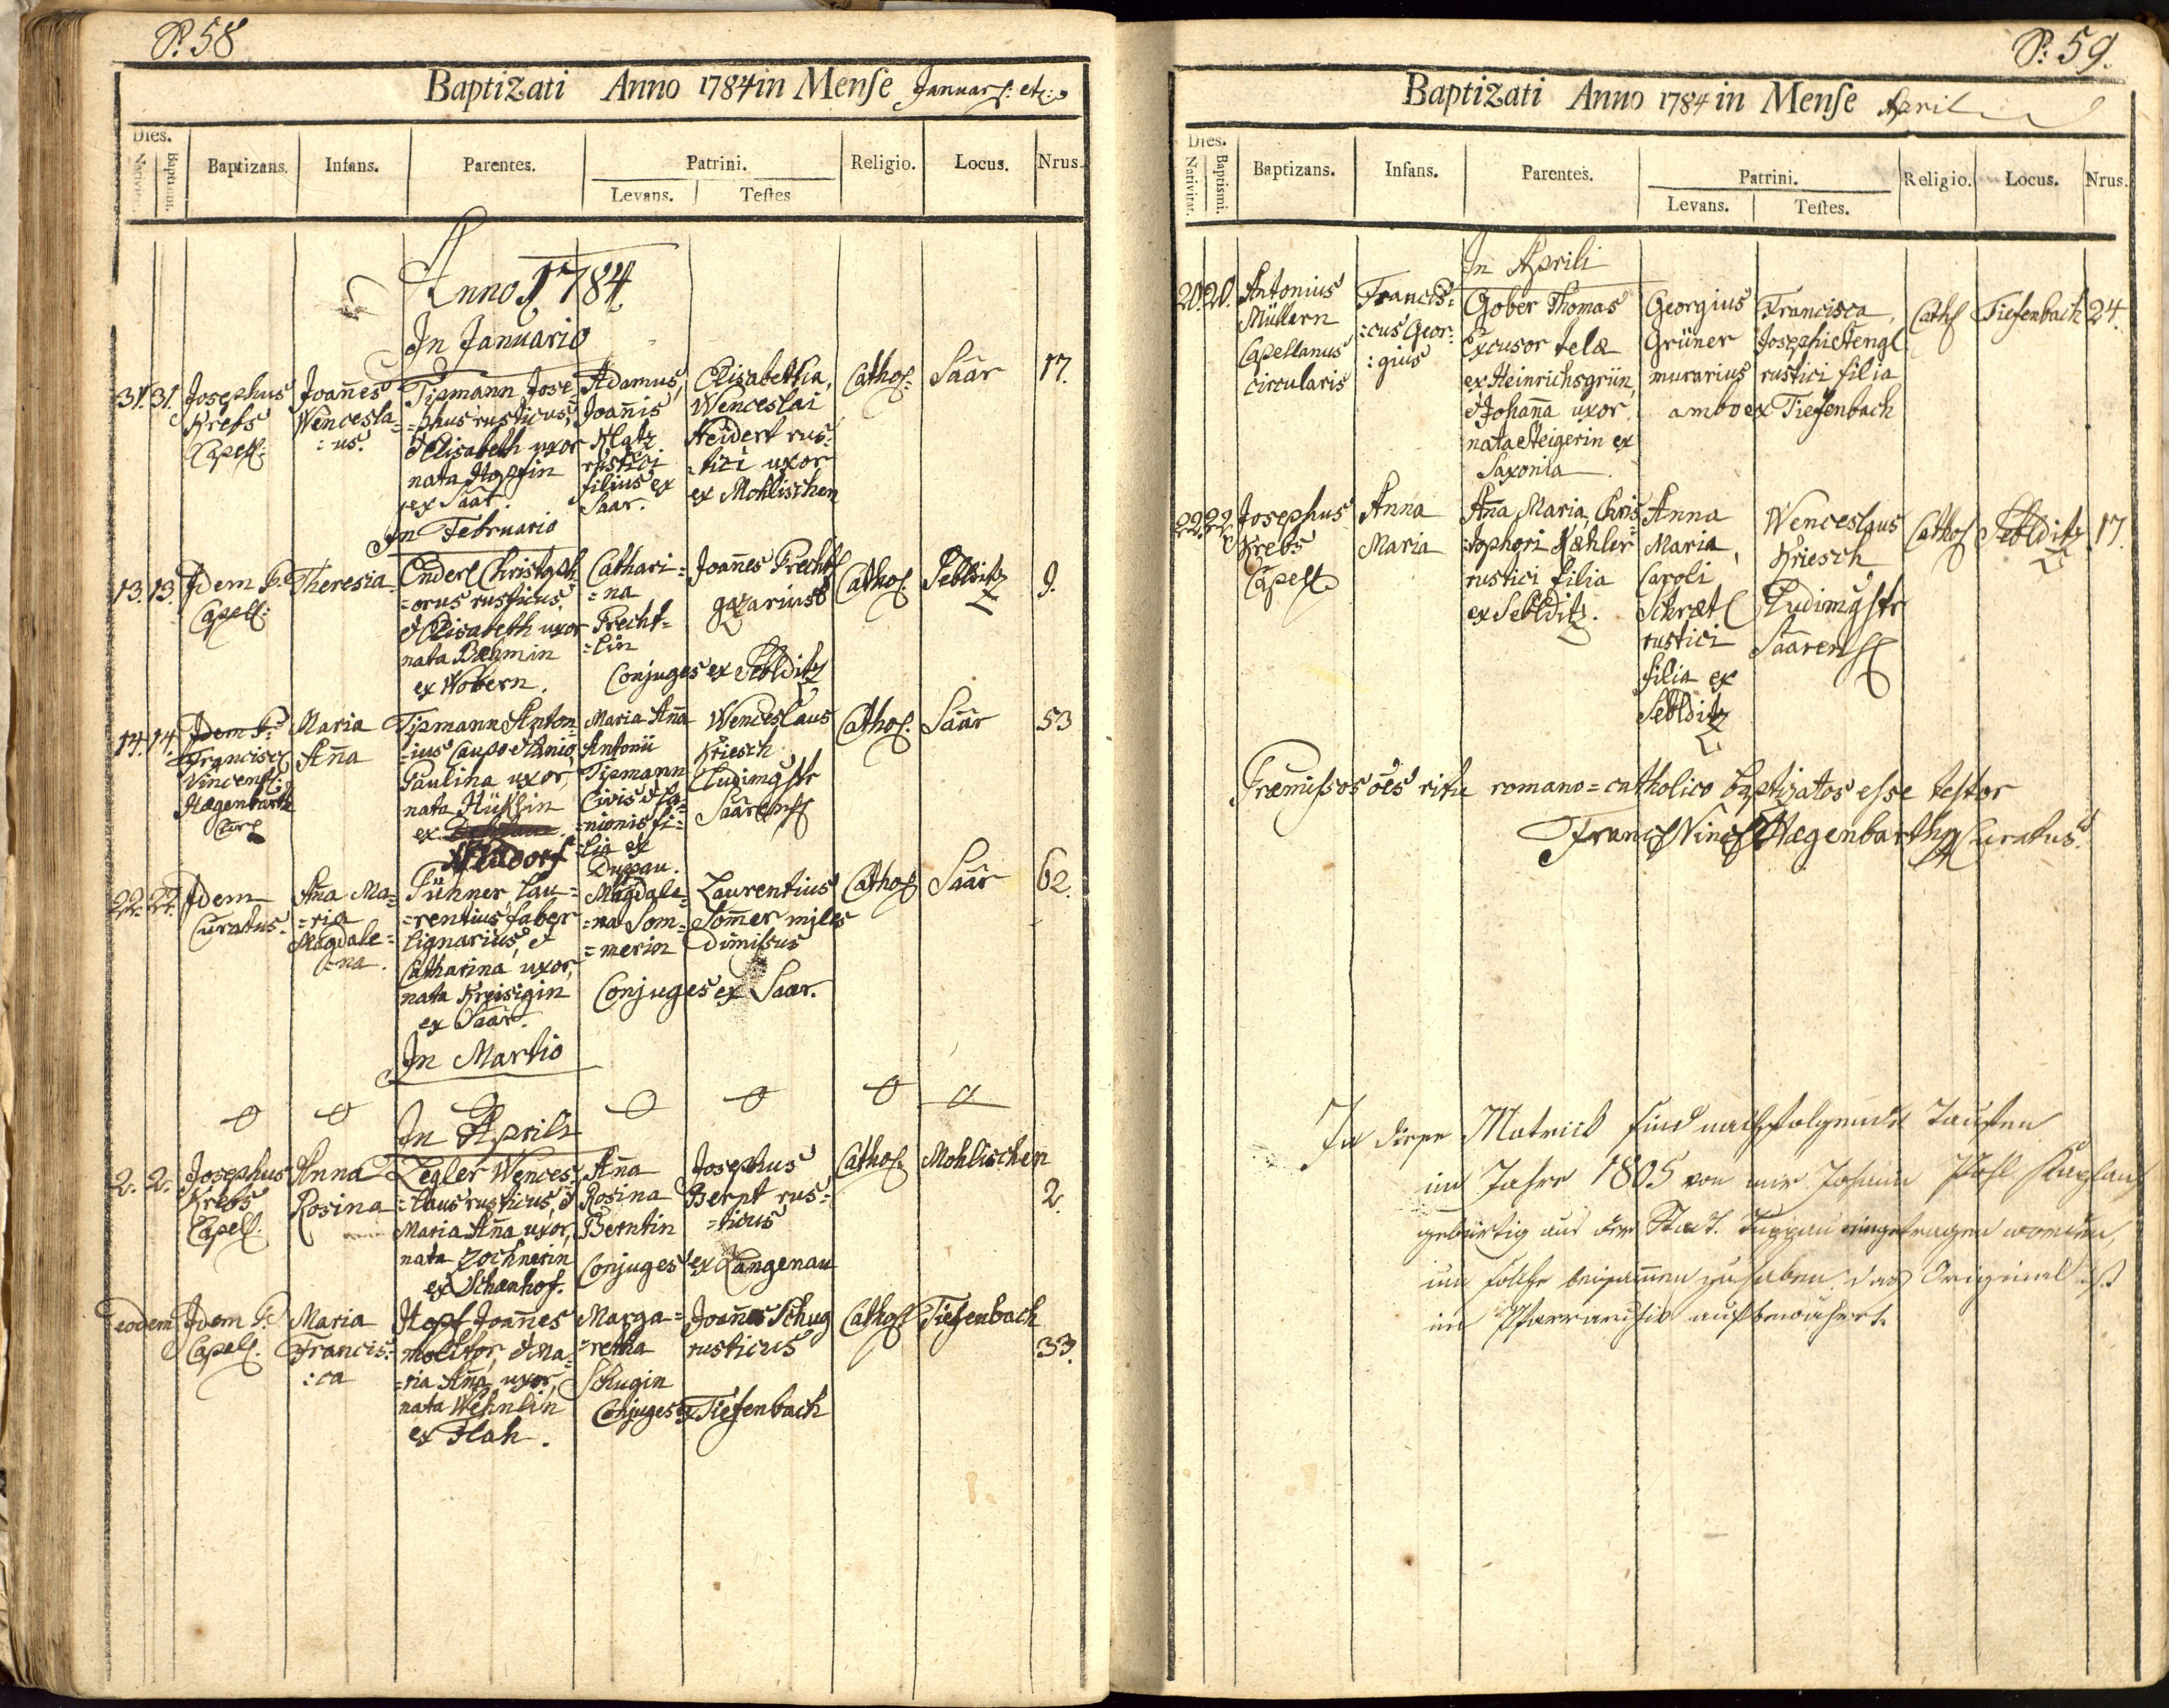 P. 58
Baptizati Anno 1784 in Mense Januar: etc:
Dies.
Nativit.
Baptismi.
Baptizans.
Infans.
Parentes.
Patrini.
Levans.
Testes
Religio.
Locus.
Nrus.
Anno 1784
In Januario
31. 31.
Josephus
Krebs
Capell:
Joan̄es
Wencesla=
=us.
Tipmann Jose=
=phus rusticus,
& Elisabeth uxor
nata Hopfin
ex Saar.
Adamus,
Joan̄is
rustici
filius ex
Saar.
Elisabetha,
Wenceslai
Neidert rus=
=tici uxor
ex Mohlischen
Cathol:
Saar
17.
In Februario
13. 13.
Idem P.
Capell:
Theresia
Enderl Christoph=
=orus rusticus,
& Elisabeth uxor
nata Bæhmin
ex Wobern.
Cathari=
=na
Frecht=
=lin
Joan̄es Frechtl
gazarius
Conjuges ex Seblditz
Cathol.
Seblditz
9.
14. 14.
Idem P.
Francisc
Vincent:
Hægenbarth
Cur
Maria
An̄a
Tipmann Anton=
=ius Caupo & Lanio
Paulina uxor,
nata
ex
Neudorf
Maria An̄a
Antonii
Tipmann
Civis & La=
=nionis fi=
=lia ex
Duppau.
Wenceslaus
Kriesch
Ludimgstr
Saarens
Cathol.
Saar
53
22. 22.
Idem
Curatus.
An̄a Ma=
=ria
Magdale=
=na.
Pühner, Lau=
=rentius faber
lignarius, &
Catharina uxor,
nata Kreisigin
ex Saar.
Magdale=
=na Som=
=merin
Laurentius
Som̄er miles
dimissus
Conjuges ex Saar.
Cathol
Saar
62.
In Martio
In Aprili
2. 2.
Josephus
Krebs
Capell.
Anna
Rosina
Zegler Wences=
=laus rusticus, &
Maria An̄a uxor,
nata Zochnerin
ex Schanhof.
An̄a
Rosina
Berntin
Josephus
Bernt rus=
=ticus
Conjuges ex Langenau
Cathol.
Mohlischen
2.
eodem
Idem P.
Capell.
Maria
Francis=
=ca
Hopf Joan̄es
molitor, & Ma=
=ria An̄a uxor,
nata Wehnlin
ex Flah.
Marga=
=retha
Schugin
Joan̄es Schug
rusticus
Conjuges ex Tiefenbach
Cathol
Tiefenbach
33.
P: 59.
Baptizati Anno 1784 in Mense April
Dies.
Nativitat.
Baptismi.
Baptizans.
Infans.
Parentes.
Patrini.
Levans.
Testes.
Religio.
Locus.
Nrus.
In Aprili
20. 20.
Antonius
Müllern
Capellanus
circularis
Francis=
=cus Geor=
=gius
Gober Thomas
Excusor telæ
ex Heinrichsgrün,
& Johan̄a uxor
nata Steigerin ex
Saxonia
Georgius
Grüner
murarius
Francisca,
Josephi Stengl
rustici filia
ambo ex Tiefenbach
Cathl
Tiefenbach
24.
22. 22.
Josephus
Krebs
Capell.
Anna
Maria
An̄a Maria, Chris=
=tophori Kæhler
rustici filia
ex Seblditz.
Anna
Maria,
Caroli
Schrætl
rustici
filia ex
Seblditz
Wenceslaus
Kriesch
Ludimgstr
Saarens
Cathol
Seblditz
17.
Præmissos oēs ritu romano=catholico baptizatos esse testor
Franc Vinc Hægenbarth Curatus.
In diese Matrick sind nachfolgende Taufen
im Jahre 1805 von mir Johann Pohl Kaplan
gebürtig aus der Stadt Duppau eingetragen worden,
um solche beisammen zu haben, das Original ist
im Pfarrarchiv aufbewahrt.